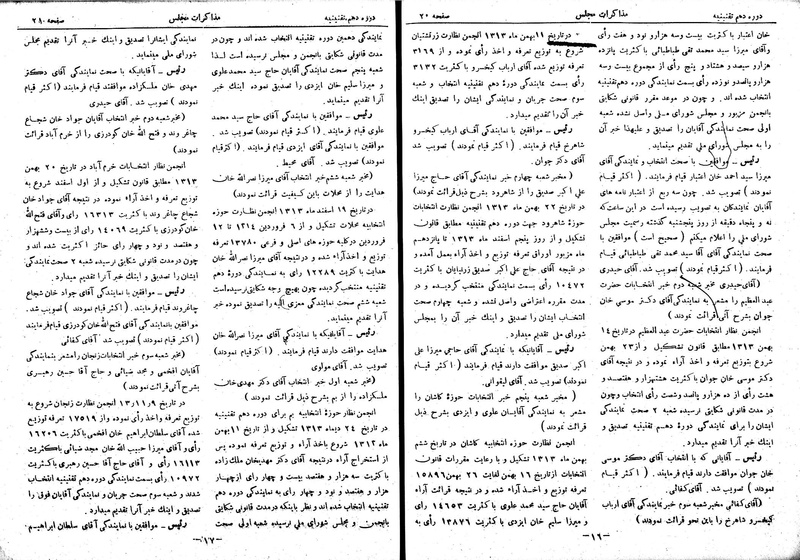 دوره دهم تقنینیه
مذاکرات مجلس
صفحه ۲۰
خان اعتبار با کثریت بیست وسه هزارو نود و هفت رأی
وآقای میرزا سید محمد تقی طباطبائی با کثریت پانزده
هزار سیصد و هشتاد و پنج رأی از مجموع بیست وسه
هزار پانصدو نوزده برأی سمت نمایندگی دوره دهم تقنینیه
انتخاب شده اند . و چون در موعد مقرر قانونی شکایتی
بانجمن مزبور و مجلس شورای ملی واصل نشده شعبه
اولی صحت نمایندگی آقایان را تصدیق و علیهذا خبر آن
را به مجلس شورای ملی تقدیم میدارد.
رئیس ـ موافقین با صحت انتخاب و نمایندگی آقای
میرزا سید احمد خان اعتبار قیام فرمایند . ( اکثر قیام
نمودند ) تصویب شد . چون سه ربع از اعتبار نامه های
آقایان نمایندگان به تصویب رسیده است در این ساعت که
نه و پنجاه دقیقه از روز پنجشنبه گذشته رسمیت مجلس
شورای ملی را اعلام میکنم ( صحیح است ) موافقین با
صحت نمایندگی آقای آقا سید محمد تقی طباطبائی قیام
فرمایند . ( اکثر قیام نمودند ) تصویب شد. آقای حیدری
(آقای حیدری مخبر شعبه دوم خبر انتخابات حضرت
عبد العظیم را مشعر به نمایندگی آقای دکتر موسی خان
جوان بشرح آتی قرائت نمودند)
انجمن نظار انتخابات حضرت عبد العظیم در تاریخ ۱۴
بهمن ۱۳۱۳ مطابق قانون تشکیل و از ۲۳ بهمن
شروع بتوزیع تعرفه و اخذ آراء نموده و در نتیجه آقای
دکتر موسی خان جوان با کثریت هشتهزار و هفتصد و
هشت رأی از ده هزارو پانصد وشصت رأی انتخاب وچون
در مدت قانونی شکایتی نرسیده شعبه ۲ صحت نمایندگی
ایشان را برای نمایندگی دورۀ دهم تقنینیه تصدیق و
اینك خبر آنرا تقدیم میدارد.
رئیس ـ آقایانی که با نمایندگی آقای دکتر موسی
خان جوان موافقت دارند قیام فرمایند . ( اکثر قیام
نمودند ) تصویب شد. آقای کفائی.
(آقای کفائی مخبر شعبه سوم خبر نمایندگی آقای ارباب
کیخسرو شاهرخ را باین نحو قرائت نمودند)
در تاریخ ۱۱ بهمن ماه ۱۳۱۳ انجمن نظارت زرتشتیان
شروع به توزیع تعرفه و اخذ رأی نموده و از ۳۱۶۹
تعرفه توزیع شده آقای ارباب کیخسرو با کثریت ۳۱۳۲
رأی بسمت نمایندگی دوره دهم تقنینیه انتخاب شده شعبه
سوم صحت جریان و نمایندگی ایشان را تصدیق و اینك
خبر آن را تقدیم میدارد.
رئیس ـ موافقین با نمایندگی آقای ارباب کیخسرو
شاهرخ قیام فرمایند . ( اکثر قیام نمودند ) تصویب شد.
آقای دکتر جوان.
(مخبر شعبه چهارم خبر نمایندگی آقای حاج میرزا
علی اکبر صدیق را از شاهرود بشرح ذیل قرائت نمودند)
در تاریخ ۲۲ بهمن ماه ۱۳۱۳ انجمن نظارت انتخابات
حوزۀ شاهرود جهت دوره دهم تقنینیه مطابق قانون
تشکیل و از روز پنجم اسفند ماه ۱۳۱۳ تا پانزدهم
ماه مزبور اوراق تعرفه توزیع و اخذ آراء بعمل آمده و
در نتیجه آقای حاج علی اکبر صدیق زرنایان با کثریت
۱۰۴۷۲ رأی بسمت نمایندگی منتخب گردیده و در
مدت مقرره اعتراضی واصل نشده و شعبه چهارم صحت
انتخاب ایشان را تصدیق و اینك خبر آن را بمجلس
شورای ملی تقدیم میدارد.
رئیس ـ آقایانیکه با نمایندگی آقای حاجی میرزا علی
اکبر صدیق موافقت دارند قیام فرمایند. ( اکثر قیام
نمودند) تصویب شد. آقای لیقوانی.
( مخبر شعبه پنجم خبر انتخابات حوزۀ کاشان را
مشعر به نمایندگی آقایان علوی و ایزدی بشرح ذیل
قرائت نمودند )
انجمن نظارت حوزه انتخابیه کاشان در تاریخ ششم
بهمن ماه ۱۳۱۳ تشکیل و با رعایت مقررات قانون
انتخابات از تاریخ ۱۶ بهمن لغایت ۲۶ بهمن ۱۵۸۹۶
تعرفه توزیع و اخذ آراء شده و در نتیجه قرائت آراء
آقایان حاج سید محمد علوی با کثریت ۱۴۶۵۳ رأی
و میرزا سلیم خان ایزدی با کثریت ۱۳۸۷۶ رأی به
ـ۱۶ـ
دوره دهم تقنینیه
مذاکرات مجلس
صفحه ۲۸۰
نمایندگی دهمین دوره تقنینیه انتخاب شده اند و چون در
مدت قانونی شکایتی بانجمن و مجلس نرسیده است لـذا
شعبه پنجم صحت نمایندگی آقایان حاج سید محمد علوی
و میرزا سلیم خان ایزدی را تصدیق نموده اینك خبر
آنرا تقدیم میدارد.
رئیس ـ موافقین با نمایندگی آقای حاج سید محمد
علوی قیام فرمایند . ( اکثر قیام نمودند ) تصویب شد.
موافقین با نمایندگی آقای ایزدی قیام فرمایند. (اکثر قیام
نمودند) تصویب شد. آقای محیط .
(مخبر شعبه ششم خبر انتخاب آقای میرزا نصرالله خان
هدایت را از محلات باین کیفیت قرائت نمودند)
در تاریخ ۱۹ اسفند ماه ۱۳۱۳ انجمن نظارت حوزه
انتخابیه محلات تشکیل و از ۶ فروردین ۱۳۱۴ تا ۱۲
فروردین در کلیه حوزه های اصلی و فرعی ۱۳۷۸۰ تعرفه
توزیع و اخذ آراء شده و در نتیجه آقای میرزا نصرالله خان
هدایت با کثریت ۱۲۲۸۹ رأی به نمایندگی دورۀ دهم
تقنینیه منتخب گردیده چون بهیچ وجه شکایتی نرسیده است
شعبه ششم صحت نمایندگی معزی الیه را تصدیق نموده خبر
آنرا تقدیم میدارد.
رئیس ـ آقایانیکه با نمایندگی آقای میرزا نصرالله خان
هدایت موافقت دارند قیام فرمایند . ( اکثر قیام نمودند )
تصویب شد. آقای مولوی
(مخبر شعبه اول خبر انتخاب آقای دکتر مهدی خان
ملکزاده را از بم بشرح ذیل قرائت نمودند)
انجمن نظار حوزۀ انتخابیه بم برای دوره دهم تقنینیه
در تاریخ ۲۴ دیماه ۱۳۱۳ تشکیل و از تاریخ ۱۱ بهمن
ماه ۱۳۱۳ شروع باخذ آراء و توزیع تعرفه نموده پس
از استخراج آراء در نتیجه آقای دکتر مهدیخان ملک زاده
با کثریت سه هزار و هفتصد و بیست و چهار رأی از چهار
هزار و هفتصد و نود و چهار رأی به نمایندگی دوره دهم
تقنینیه انتخاب شده اند و نظر باینکه در مدت قانونی شکایتی
بانجمن و مجلس شورای ملی نرسیده شعبه اولی صحت
نمایندگی ایشانرا تصدیق و اینك خبر آنرا تقدیم مجلس
شورای ملی مینماید.
رئیس ـ آقایانیکه با صحت نمایندگی آقای دکتر
مهدی خان ملکزاده موافقند قیام فرمایند ( اکثر قیام
نمودند ) تصویب شد. آقای حیدری
(مخبر شعبه دوم خبر انتخاب آقایان جواد خان شجاع
چاغروند و فتح الله خان گودرزی را از خرم آباد قرائت
نمودند)
انجمن نظار انتخابات خرم آباد در تاریخ ۲۰ بهمن
۱۳۱۳ مطابق قانون تشکیل و از اول اسفند شروع به
توزیع تعرفه و اخذ آراء نموده در نتیجه آقای جواد خان
شجاع چاغر وند با کثریت ۱۶۳۱۳ رأی وآقای فتح الله
خان گودرزی با کثریت ۱۴۰۶۹ رأی از بیست وششهزار
و هفتصد و نود و چهار رأی حائز اکثریت شده اند و
چون در مدت قانونی شکایتی نرسیده شعبه ۲ صحت نمایندگی
ایشان را تصدیق و اینك خبر آنرا تقدیم میدارد.
رئیس ـ موافقین با نمایندگی آقای جواد خان شجاع
چاغروند قیام فرمایند. ( اکثر قیام نمودند ) تصویب شد.
موافقین با نمایندگی آقای فتح الله خان گودرزی قیام فرمایند.
( اکثر قیام نمودند ) تصویب شد. آقای کفائی
( مخبر شعبه سوم خبر انتخابات زنجان را مشعر بنمایندگی
آقایان افخمی و مجد ضیائی و حاج آقا حسین رهبری
بشرح آتی قرائت نمودند)
در تاریخ ۱۳ر۱۱ر۹ انجمن نظارت زنجان شروع به
توزیع تعرفه واخذ رأی نموده و از ۱۷۵۱۹ تعرفه توزیع
شده آقای سلطان ابراهیم خان افخمی با کثریت ۱۶۲۰۶
رأی و آقای میرزا حبیب الله خان مجد ضیائی با کثریت
۱۶۱۱۳ رأی و آقای حاج آقا حسین رهبری با کثریت
۱۰۹۷۲ رأی بسمت نمایندگی دوره دهم تقنینیه انتخاب
شده و شعبه سوم صحت جریان و نمایندگی آقایان فوق را
تصدیق و اینك خبر آنرا تقدیم میدارد.
رئیس ـ موافقین با نمایندگی آقای سلطان ابراهیم
ـ۱۷ـ